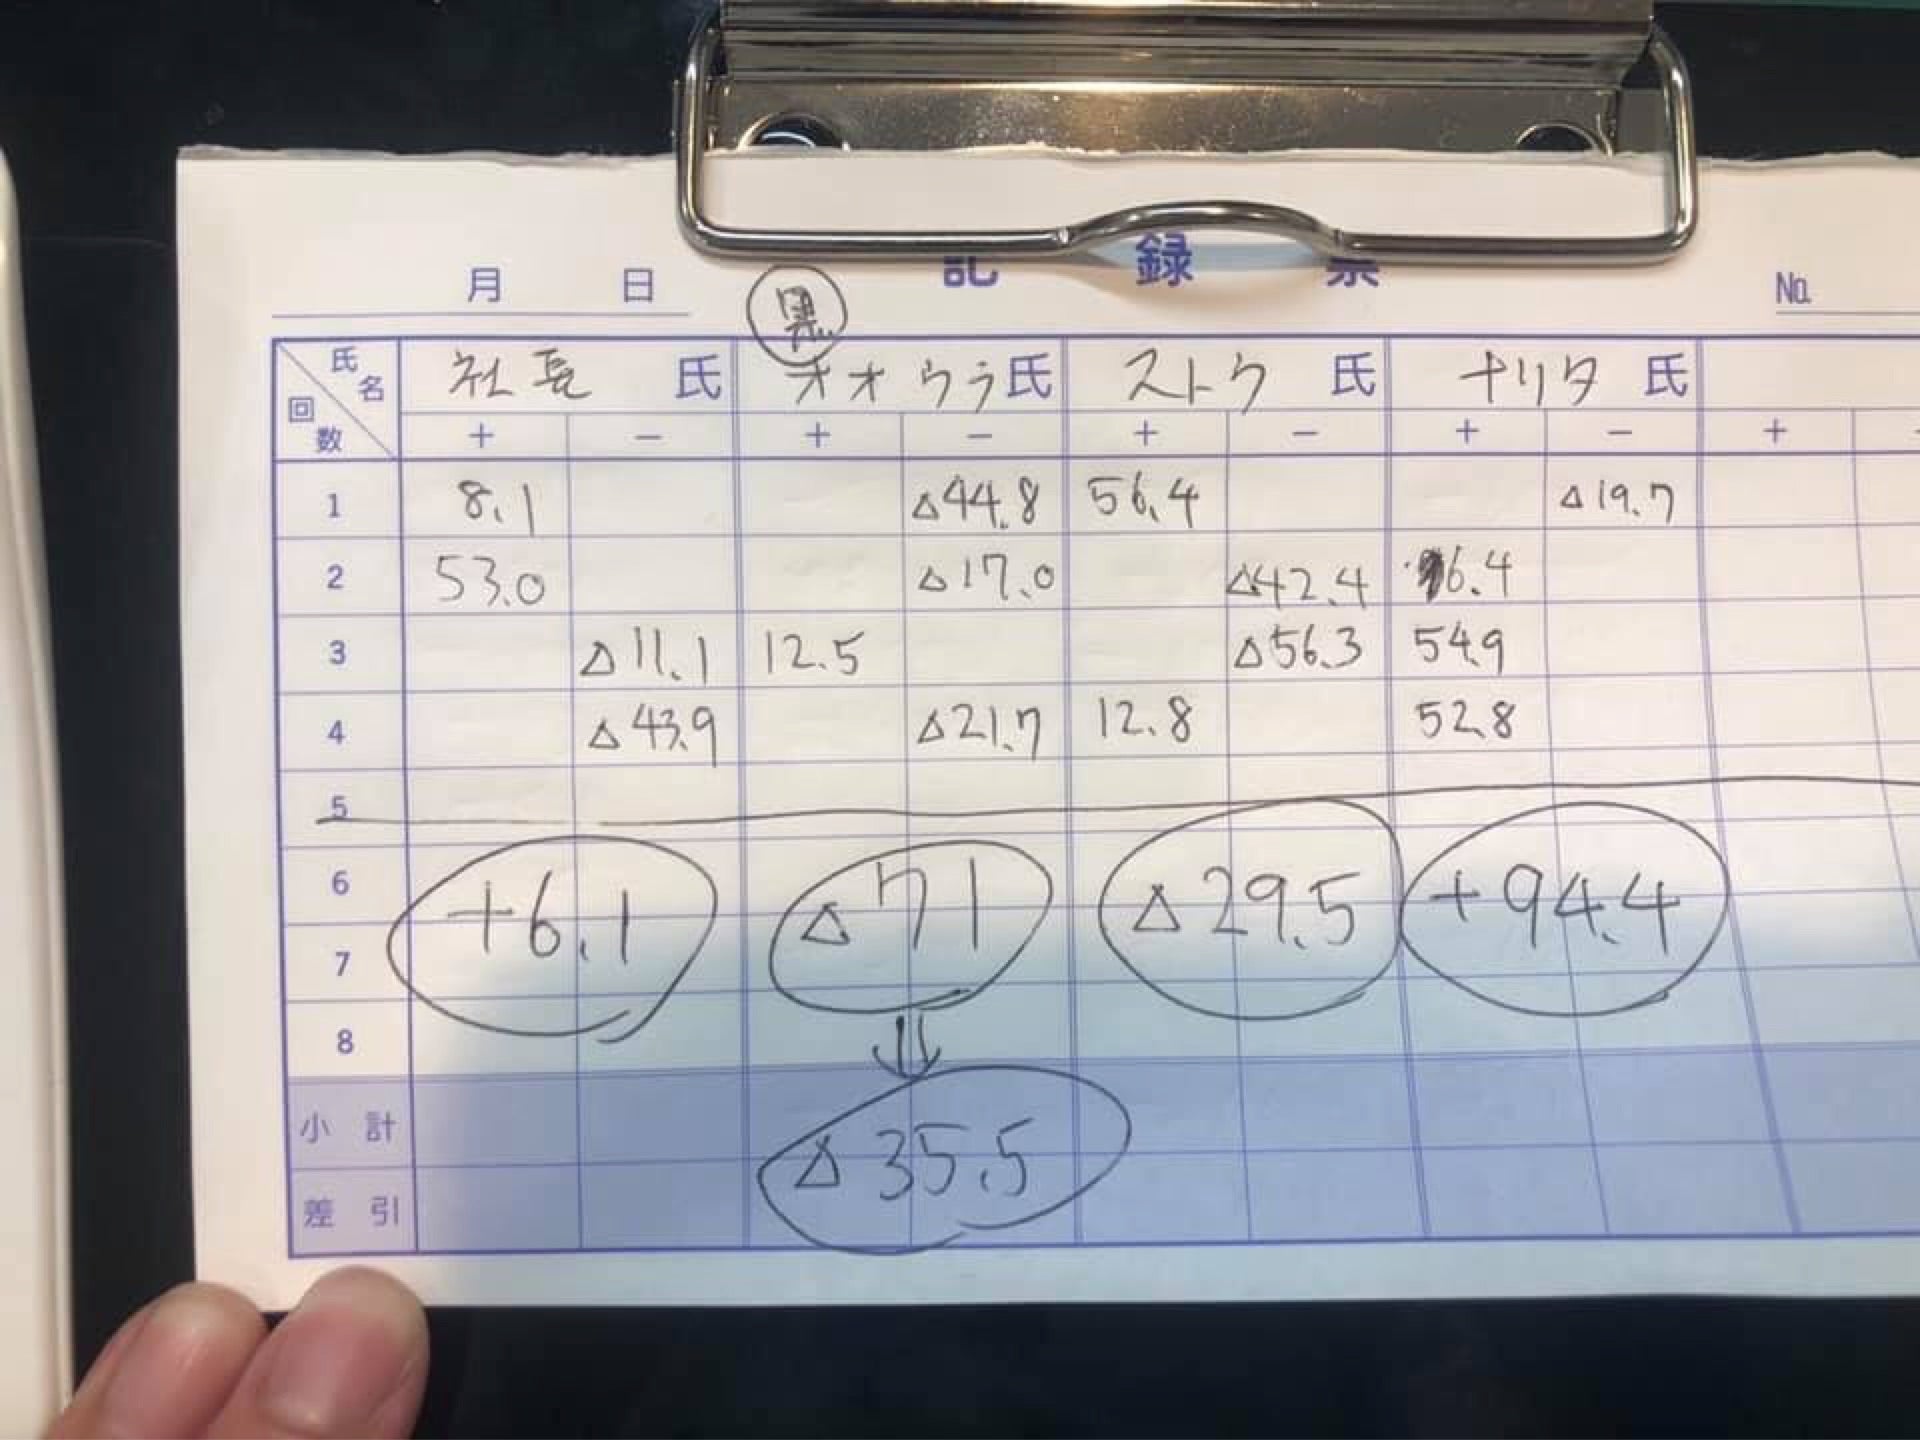 月 日 記録票 No.
黒
氏名 回数 社長 氏 オオウラ 氏 ストウ 氏 ナリタ 氏
+ − + − + − + − +
1 8.1 △44.8 56.4 △19.7
2 53.0 △17.0 △42.4 6.4
3 △11.1 12.5 △56.3 54.9
4 △43.9 △21.7 12.8 52.8
5
6
+6.1 △71 △29.5 +94.4
7
8
⇓
小計
△35.5
差引